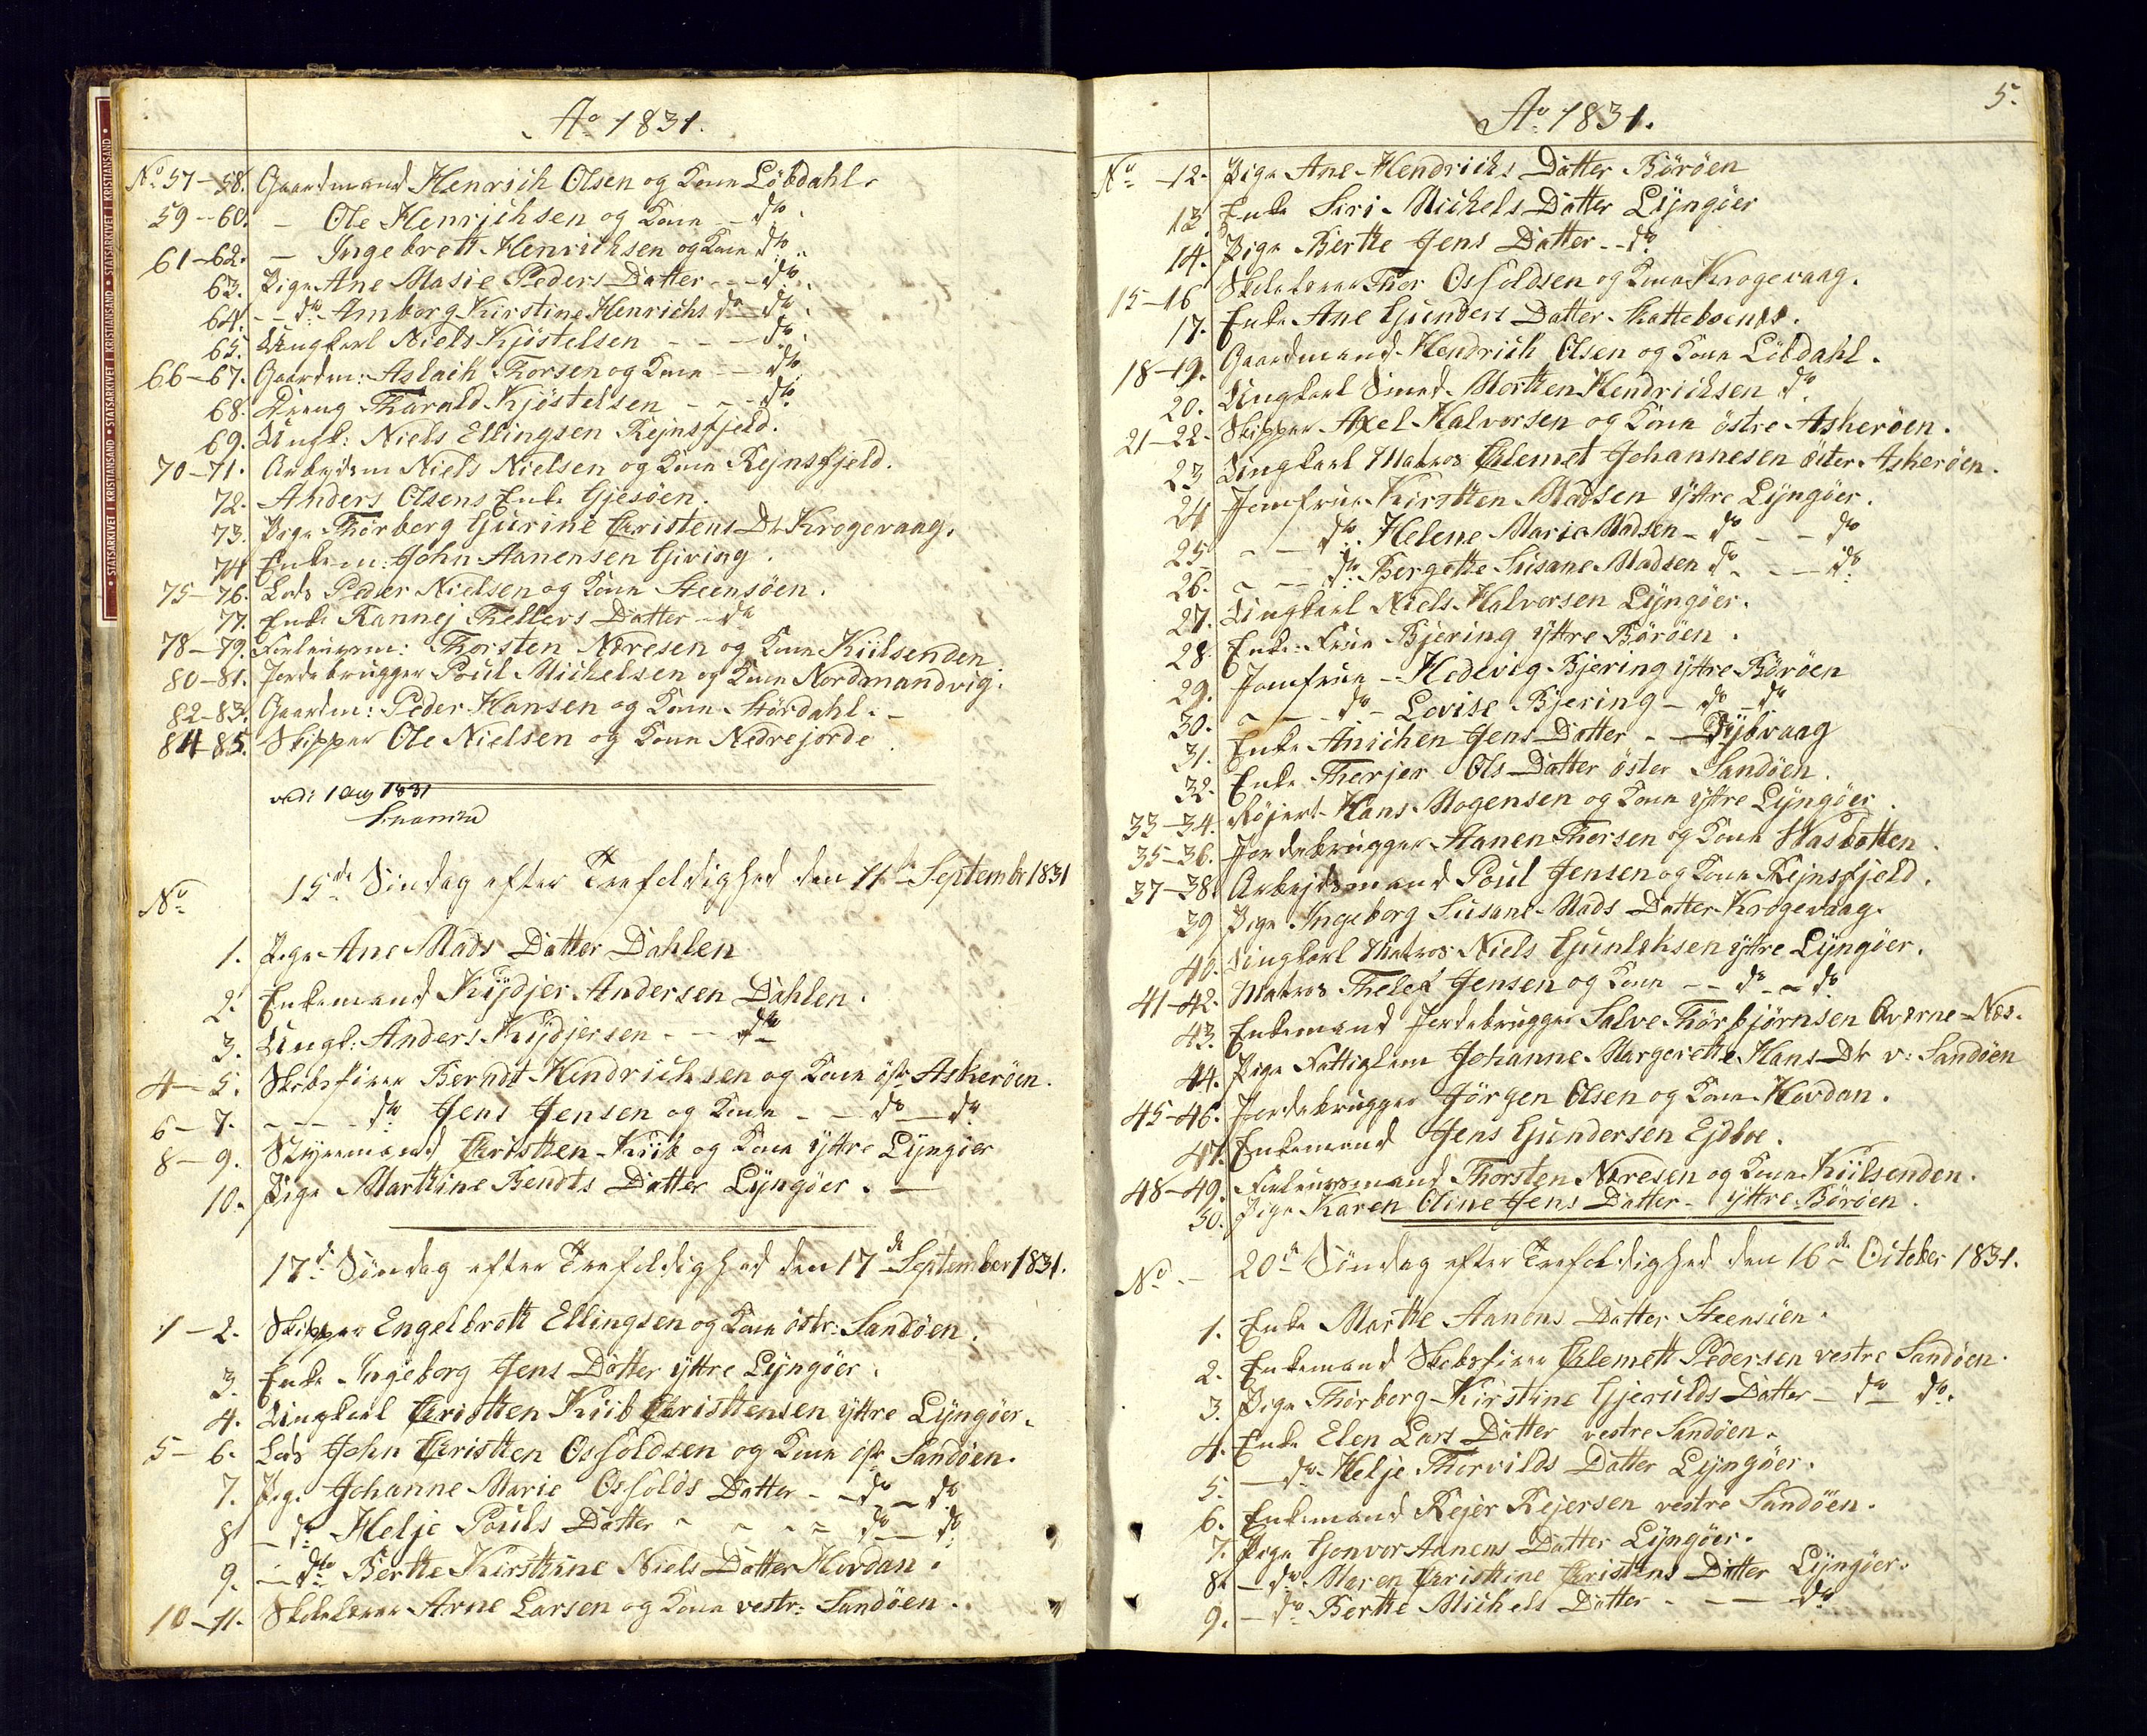 • STATSARKIVET I KRISTIANSAND • STATSARKIVET I KRISTIANSAND • STATSARKIVET I KRISTIANSAND •
Ao 1831.
No 57-58. Gaardmand Henrich Olsen og Kone Löbdahl.
59-60. - Ole Henrichsen og Kone - do.
61-62. - Ingebrett Henrichsen og Kone do.
63. Pige Ane Marie Peders Datter - - do.
64. - do. Amborg Kirstine Henrichs do - do.
65. Ungkarl Niels Kjöstelsen - - - do.
66-67. Gaardm: Aslach Thorsen og Kone - - do.
68. Dreng Tharald Kjöstelsen - - - do.
69. Ungk: Niels Ellingsen Rejnsfjeld.
70-71. Arbejdsm Niels Nielsen og Kone Rejnsfjeld.
72. Anders Olsens Enke Gjesöen.
73. Pige Thorborg Gurine Christens Dr Krogevaag.
74 Enkem: John Aanensen Giving.
75-76. Lods Peder Nielsen og Kone Steensöen.
77. Enke Rannej Thellevs Datter - do
78-79. Thorsten Næresen og Kone Kiilsenden.
80-81. Jordebrugger Poul Michelsen og Kone Nordmandvig.
82-83. Gaardm: Peder Hansen og Kone Stördahl. -
84-85. Skipper Ole Nielsen og Kone Nedrejorde
vidi 1 Aug 1831
No 15de Söndag efter Trefoldighed den 11te Septembr 1831
1. Pige Ane Mads Datter Dahlen
2. Enkemand Kijdjer Andersen Dahlen.
3. Ungk: Anders Kijdjersen - - do
4-5. Berndt Hendrichsen og Kone östr Askeröen.
6-7. - - - do Jens Jensen og Kone - - do - do
8-9. Styrmand Christen Kiib og Kone yttre Lyngöer
10. Pige Marthine Bendts Datter Lyngöer. -
17de Söndag efter Trefoldighed den 17de September 1831.
1-2. Skipper Engelbrett Ellingsen og Kone östr: Sandöen.
3. Enke Ingeborg Jens Datter yttre Lyngöer.
4. Ungkarl Christen Kiib Christensen yttre Lyngöer.
5-6. Lods John Christen Osfoldsen og Kone östr Sandöen.
7. Pige Johanne Marie Osfolds Datter - - do - do
8 - do Helje Pouls Datter - - - - do - do
9. - do Berthe Kirstine Niels Datter Hovdan.
10-11. Skolelærer Arne Larsen og Kone vestr: Sandöen.
5.
Ao 1831.
No -12. Pige Ane Hendrichs Datter Böröen
13. Enke Siri Michels Datter Lyngöer
14. Pige Berthe Jens Datter - - do
15-16 Skolelærer Thor Osfoldsen og Kone Krogevaag.
17. Enke Ane Gunders Datter Skatteboens.
18-19. Gaardmand Hendrich Olsen og Kone Löbdahl.
20. Ungkarl Smed Morthen Hendrichsen do.
21-22. Skipper Axel Halvorsen og Kone östre Askeröen.
23 Ungkarl Matros Clemet Johannesen öster Askeröen.
24 Jomfrue Kirsten Madsen yttre Lyngöer.
25 - - do. Helene Marie Madsen - do - - do
26. - - - do. Bergette Susane Madsen do - - - do
27. Ungkarl Niels Halvorsen Lyngöer.
28. Enke Frue Bjering yttre Böröen.
29. Jomfrue - Hedevig Bjering yttre Böröen
30. - - - do - Lovise Bjering - do - do
31. Enke Anichen Jens Datter - - Dybvaag
32. Enke Therjer Ols Datter öster Sandöen.
33-34. Hans Mogensen og Kone yttre Lyngöer.
35-36. Jordebrugger Aanen Thorsen og Kone Wasbotten.
37-38. Arbejdsmand Poul Jensen og Kone Rejnsfjeld.
39 Pige Ingeborg Susane Mads Datter Krogevaag.
40. Ungkarl Matros Niels Gunleksen yttre Lyngöer.
41-42. Matros Thelef Jensen og Kone - - do - - do
43. Enkemand Jordebrugger Salve Thorbjörnsen Qværne-Næs.
44. Pige Fattiglem Johanne Margerette Hans Dr v: Sandöen
45-46. Jordebrugger Jörgen Olsen og Kone Hovdan.
47. Enkemand Jens Gundersen Ejdboe.
48-49. Thorsten Næresen og Kone Kiilsenden.
50. Pige Karen Oline Jens Datter - yttre Böröen.
No. - 20de Söndag efter Trefoldighed den 16de October 1831.
1. Enke Marthe Aanens Datter Steensöen.
2. Enkemand Clemett Pedersen vestre Sandöen.
3. Pige Thorborg Kirstine Gjerulds Datter - do do.
4. Enke Elen Lars Datter vestre Sandöen.
5. - do - Helje Thorvilds Datter Lyngöer.
6. Enkemand Rejer Rejersen vestre Sandöen.
7. Pige Gonvor Aanens Datter Lyngöer.
8. - do - Maren Christine Christens Datter Lyngöer.
9. - do - Berthe Michels Datter - - - do